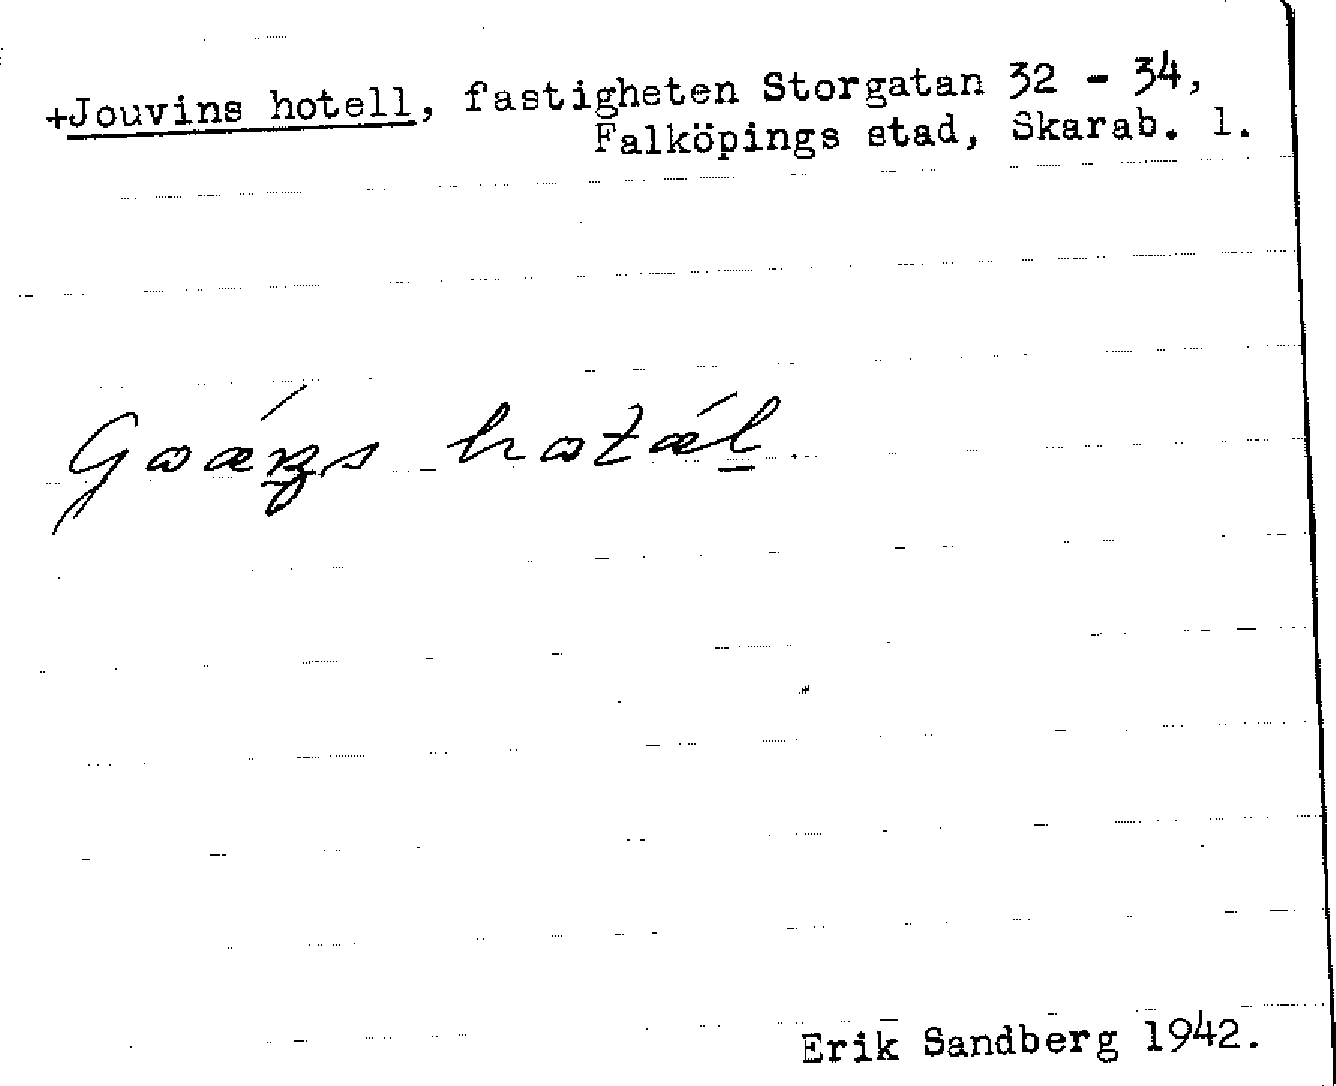 +Jouvins hotell, fastigheten Storgatan 32 - 34,
Falköpings stad, Skarab. l.
hotǽl.
Erik Sandberg 1942.